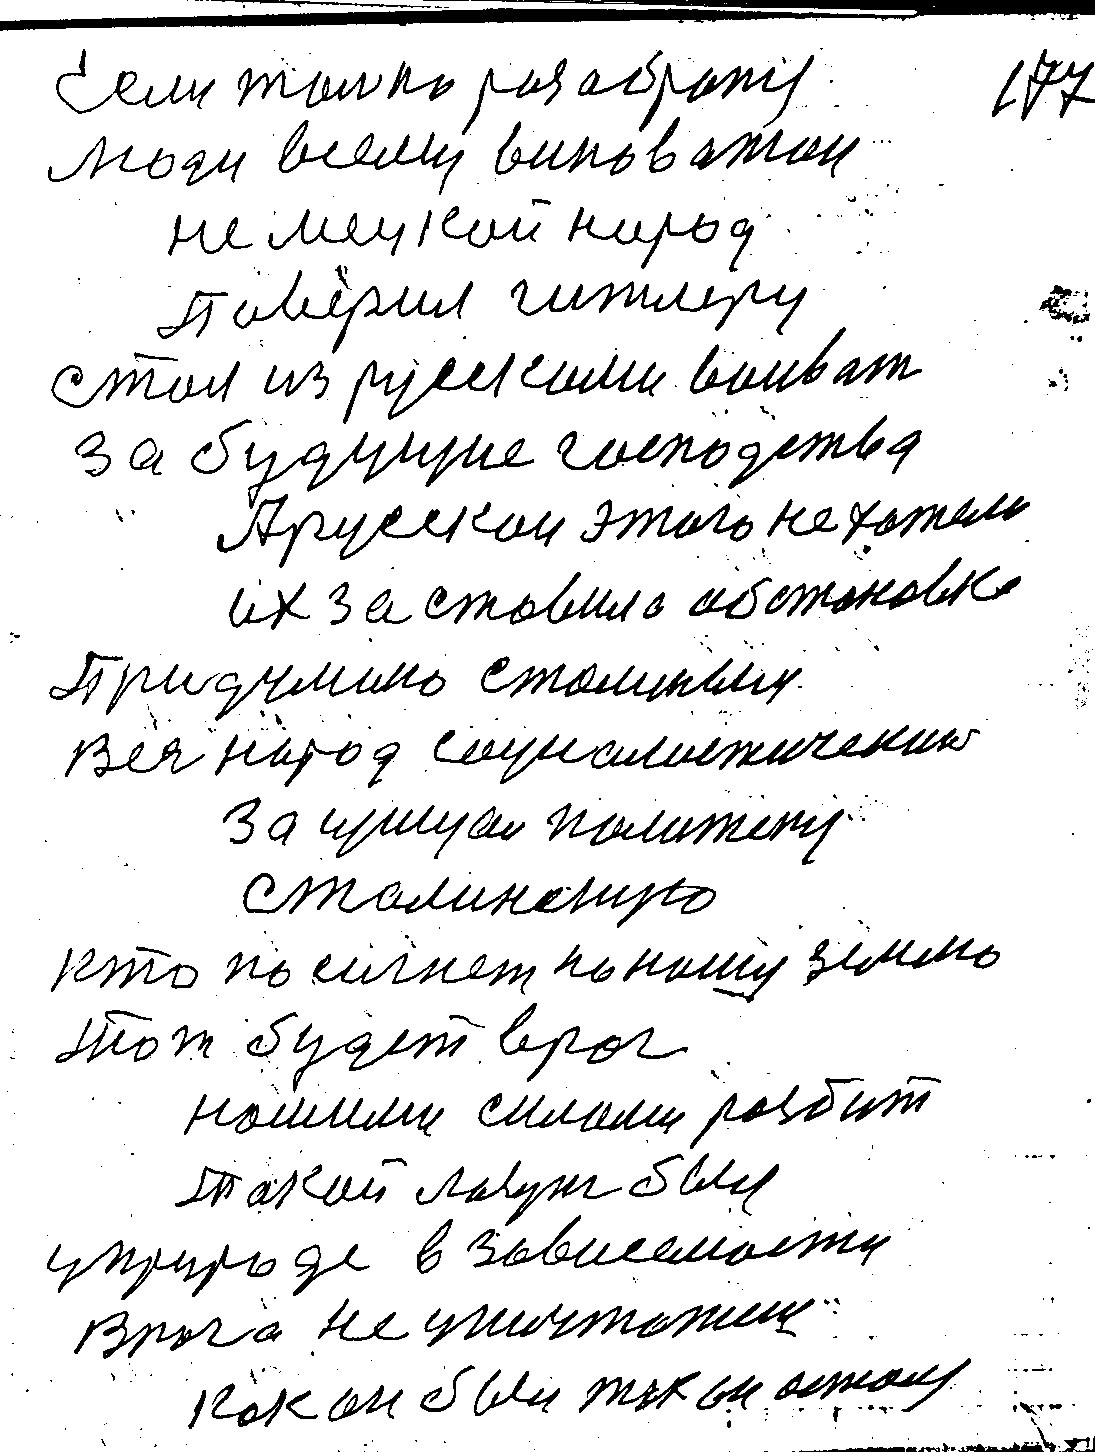 Если только разобраты 177
Люди всему виноватаи
немецкай народ
Поверил гитлеру
стал из русскими воиват
за будущие господства
А русскаи этого не хотела
их заставила обстановка
Придумано сталиным
Вся народ социалистическаи
защищал политеку
сталинскую
кто посигнет на нашу землю
тот будет враг
нашими силами разбит
Такой лозунг был
у природе в зависемости
Врага не уничтожиш
как он был так он астал